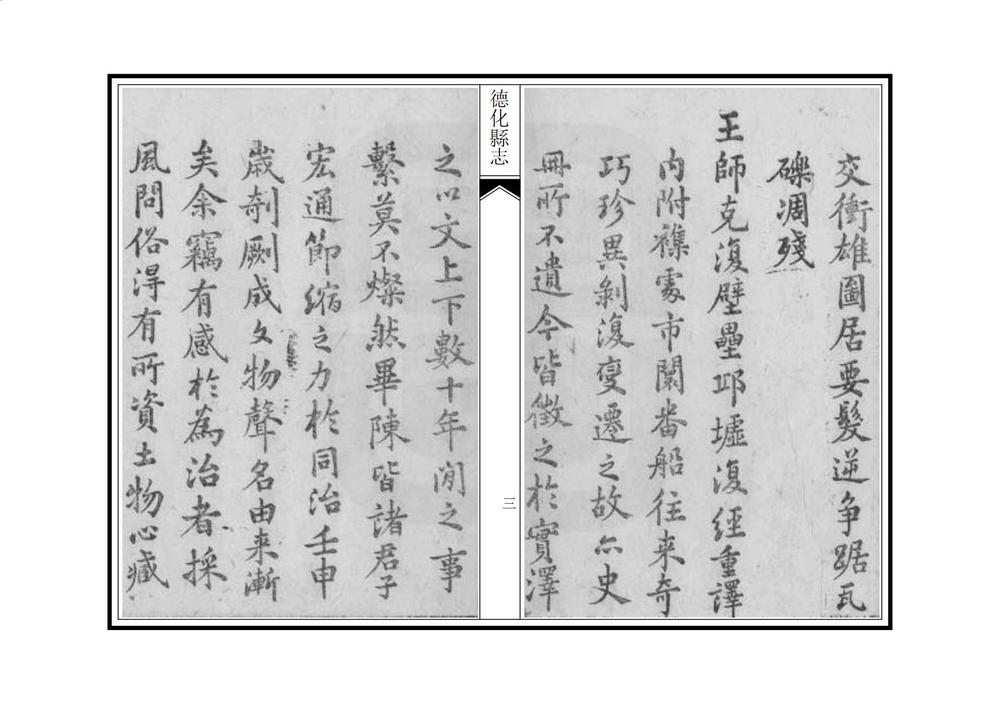 交衝雄圖居要髮逆争踞瓦
礫凋殘
王師克復壁壘邱墟復經重譯
内附襍處市闤番船往来奇
巧珍異剝復變遷之故亦史
冊所不遺今皆徵之於實澤
德化縣志
三
之以文上下數十年閒之事
繫莫不燦然畢陳皆諸君子
宏通節縮之力於同治壬申
歲剞劂成文物聲名由来漸
矣余竊有感於為治者採
風問俗淂有所資土物心臧